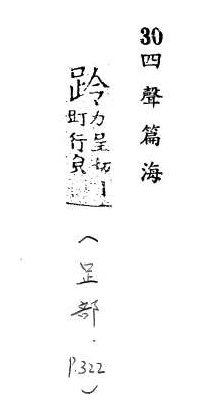 30四聲篇海
跉力呈切丨
䟓行皃
（足部．P.322）